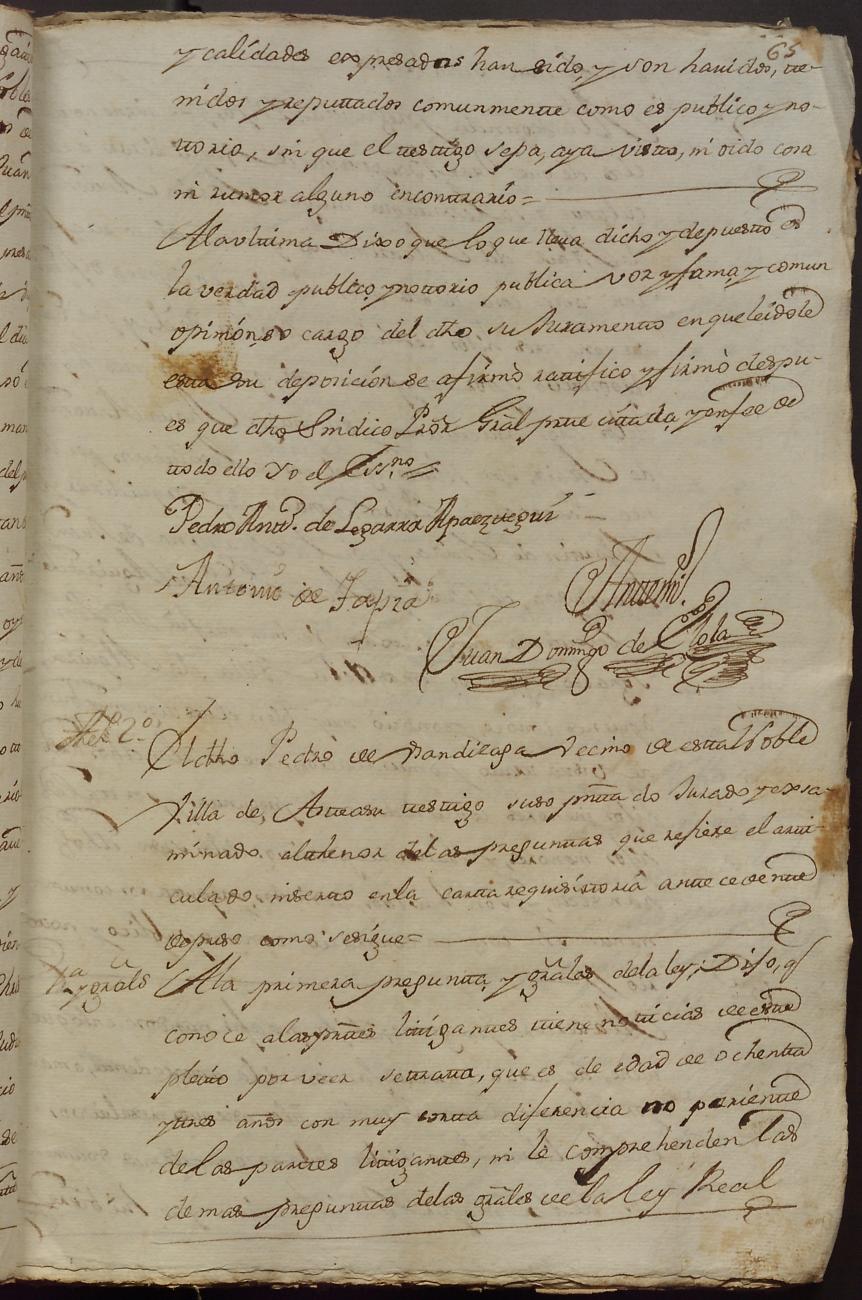 65
y calidades expresadas han sido, y son havidos, te-
nidos y reputtados comunmentte como es publico y no-
ttorio, sin que el ttesttigo sepa, aya vistto, ni oido cosa
ni rumor alguno encontrario=
Ala vltima Dixo que lo que lleva dicho y depuestto es
la verdad publico, y nottorio publica voz y fama, y comun
opinion, so cargo del dho su Juramentto en que leidole
esta su deposición se afirmó rattifico y firmò despu-
es que dho Sindico Pror Gral prte cittada, y en fee de
ttodo ello Yo el Essno
Pedro Antto. de Legarra Apaezttegui
Antonio de Tapia
Anttemi.
Juan Domingo de
Ttgo 2º
El dho Pedro de Vandiraga Vecino de estta Noble
Villa de Astteasu ttesttigo susopnttado Jurado y exsa-
minado althenor delas pregunttas que refiere el artti-
culado insertto en la cartta requisittoria anttecedentte
depuso como se sigue=
1ª y grals
Ala primera pregunta, y grâles dela ley; Dijo, q
conoce alas prttes littiganttes tiene notticias de estte
pleitto por veer se tratta, que es de edad de ochentta
y tres años con muy cortta diferencia no parientte
de las parttes littiganttes, ni le comprehenden las
demas pregunttas delas grâles de la ley Real